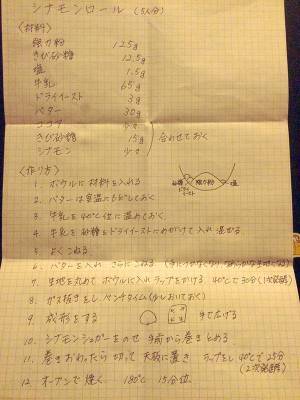 シナモンロール (5人分)
〈材料〉
強力粉 125g
きび砂糖 12.5g
塩 1.5g
牛乳 65g
ドライイースト 3g
バター 30g
ココア 少々
きび砂糖 15g 合わせておく
シナモン 少々
〈作り方〉
1. ボウルに材料を入れる 砂糖 ドライイースト 強力粉 塩
2. バターは室温にもどしておく
3. 牛乳を40℃位に温めておく
4. 牛乳を砂糖とドライイーストにめがけて入れ混ぜる
5. よくこねる
6. バターを入れ さらにこねる
7. 生地を丸めて ボウルに入れラップをかける 40℃で30分(1次発酵)
8. ガス抜きをし、ベンチタイム(少しおいておく)
9. 成形をする 手で広げる
10. シナモンシュガーをのせ 手前から巻きとめる
11. 巻きおわったら切って 天板に置き ラップをし 40℃で25分
(2次発酵)
12. オーブンで焼く 180℃ 15分位